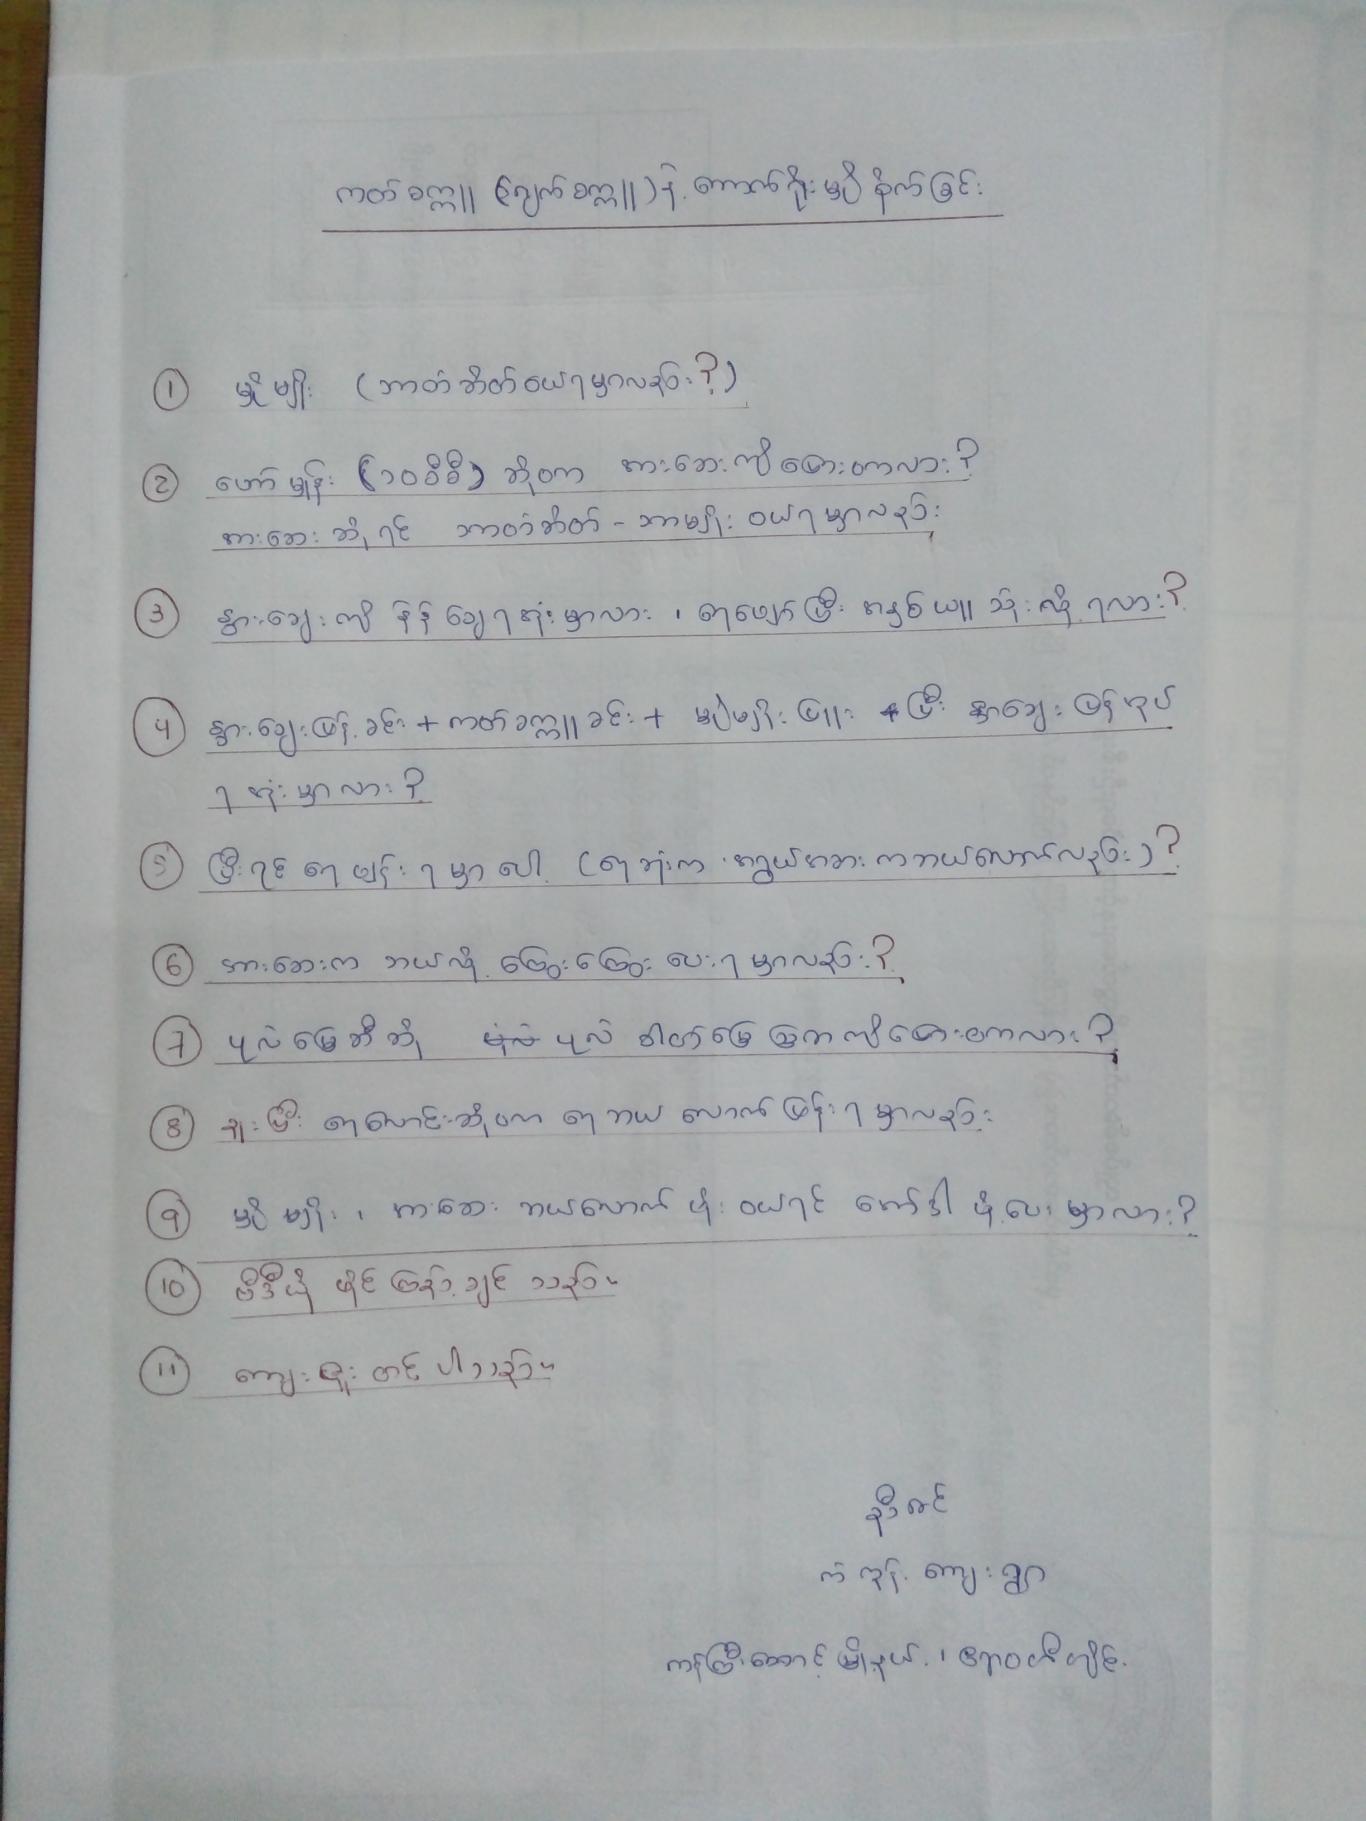 ကတ်စက္ကူ (ဂျတ်စက္ကူ) နဲ့ ကောက်ရိုးမှိုစိုက်ခြင်း
① မှိုမျိုး (ဘာတံဆိတ်ဝယ်ရမှာလည်း?)
② ဟော်မျုန်း (၁၀စီစီ) ဆိုတာ အားဆေးကိုပြောတာလား?
အားဆေးဆိုရင် ဘာတံဆိတ် - ဘာမျိုးဝယ်ရမှာလည်း
③ နွားချေးကို နိုန်ချေရအုံးမှာလား၊ ရေဖျော်ပြီးအနှစ်ယူသုံးလို့ရလား?
④ နွားချေးဖြန့်ခင်း + ကတ်စက္ကူခင်း + မှိုမျိုးဖြူး + ပြီး နွားချေးပြန်အုပ်
ရအုံးမှာလား?
⑤ ပြီးရင်ရေဖျန်းရမှာပေါ့ (ရေဘုံးက အရွယ်အစားကဘယ်လောက်လည်း)?
⑥ အားဆေးက ဘယ်လိုကြွေးကြွေးပေးရမှာလည်း?
⑦ ပုလဲမြေဩဇာဆို ပုလဲဓါတ်မြေဩဇာကိုပြောတာလား?
⑧ ရေလောင်းဆိုတာ ရေဘယ်လောက်ဖြန်းရမှာလည်း
⑨ မှိုမျိုး၊ အားဆေး ဘယ်လောက်ဖိုးဝယ်ရင် အော်ဒါပို့ပေးမှာလား?
⑩ ဗီဒီယိုဖိုင်ကြည့်ချင်သည်။
⑪ ကျေးဇူးတင်ပါသည်။
ကံကုန်းကျေးရွာ
ကန်ကြီးထောင့်မြို့နယ်၊ ဧရာဝတီတိုင်း